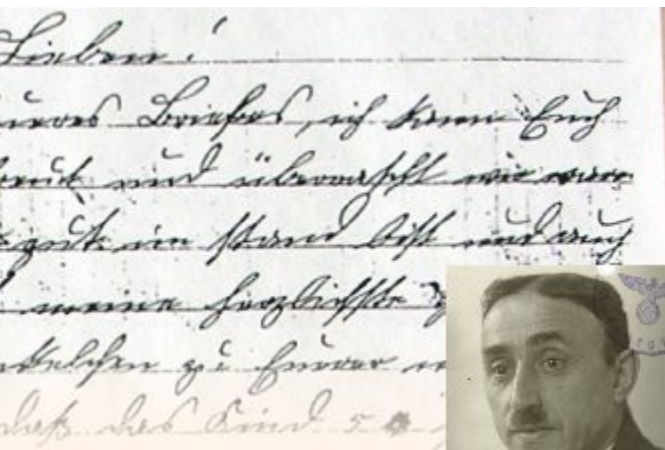 Lieben!
Eures Briefes, ich kann Euch
und überrascht wie
gut im Stand bist und auch
meine herzlichste
zu Eurer
daß das Kind 5